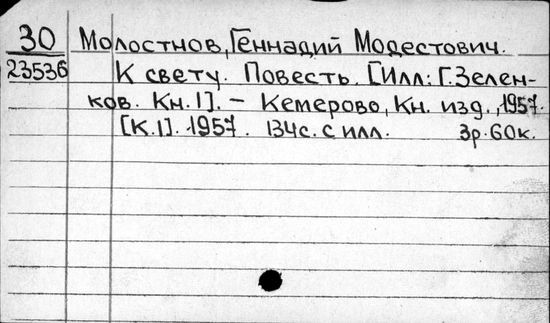 30 Молостнов, Геннадий Модестович.
23536 К свету. Повесть. [Илл: Г. Зелен-
ков. Кн. I]. – Кемерово, Кн. изд., 1957.
[К.I]. 1957. 134с. с илл. 3р. 60к.